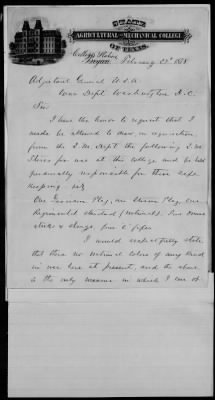 STATE
AGRICULTURAL AND MECHANICAL COLLEGE
OF TEXAS.
College Station
Bryan, February 22d 1878
Adjutant General U.S.A
War Dept. Washington D.C.
Sir
I have the honor to request that I
made be allowed to draw, on requisition
from the Q.M. Dept the following Q.M.
Stores for use at this college and be held
personally responsible for their safe
keeping viz
One Garrison Flag, one Storm Flag, one
Regimental Standard (national). Five drums
sticks & slings, five fifes
I would respectfully state
that there no national colors of any kind
in use here at present, and the above
is the only manner in which I can